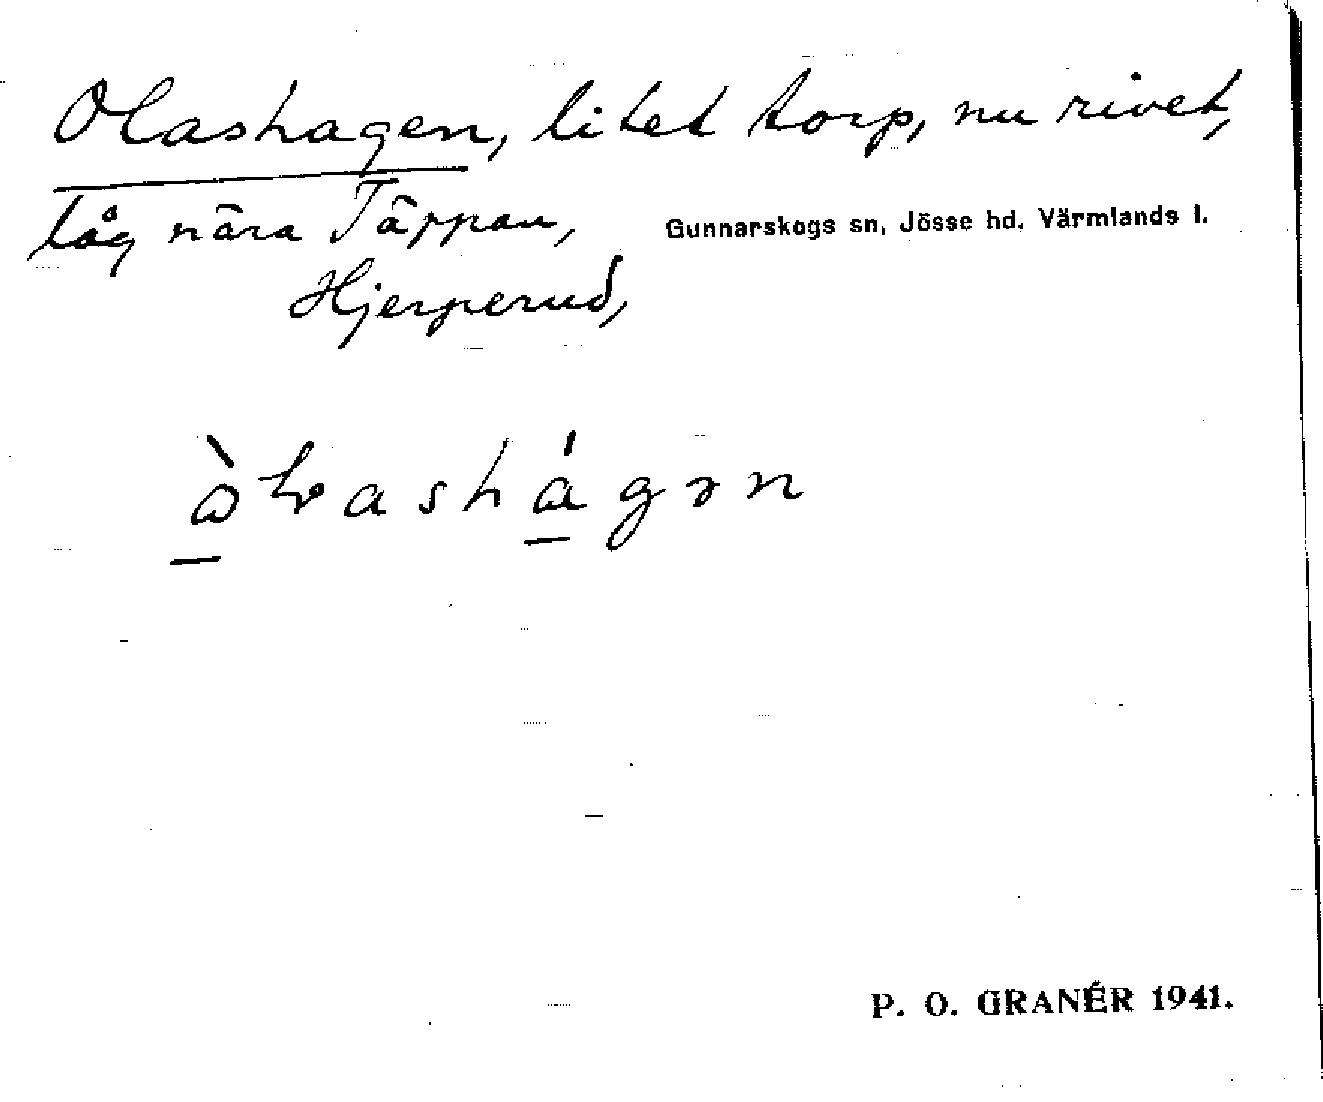 Olashagen, litet torp, nu rivet,
låg nära Täppan,
Gunnarskogs sn, Jösse hd. Värmlands l.
Hjerperud,
P. O. GRANÉR 1941.